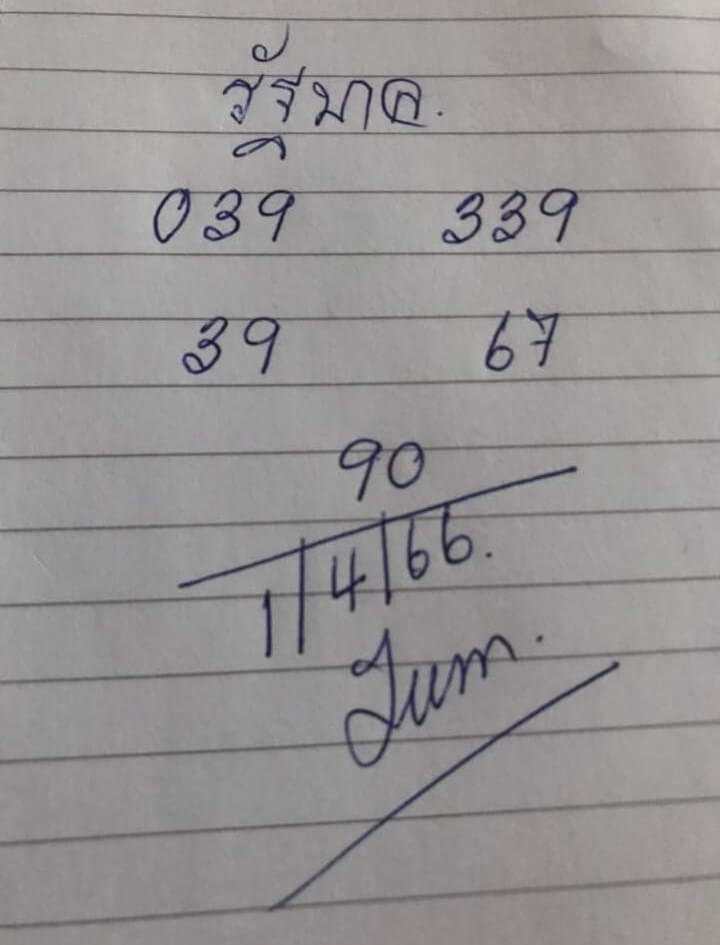 รัฐบาล.
039 339
39 67
90
1/4/66.
Jum.